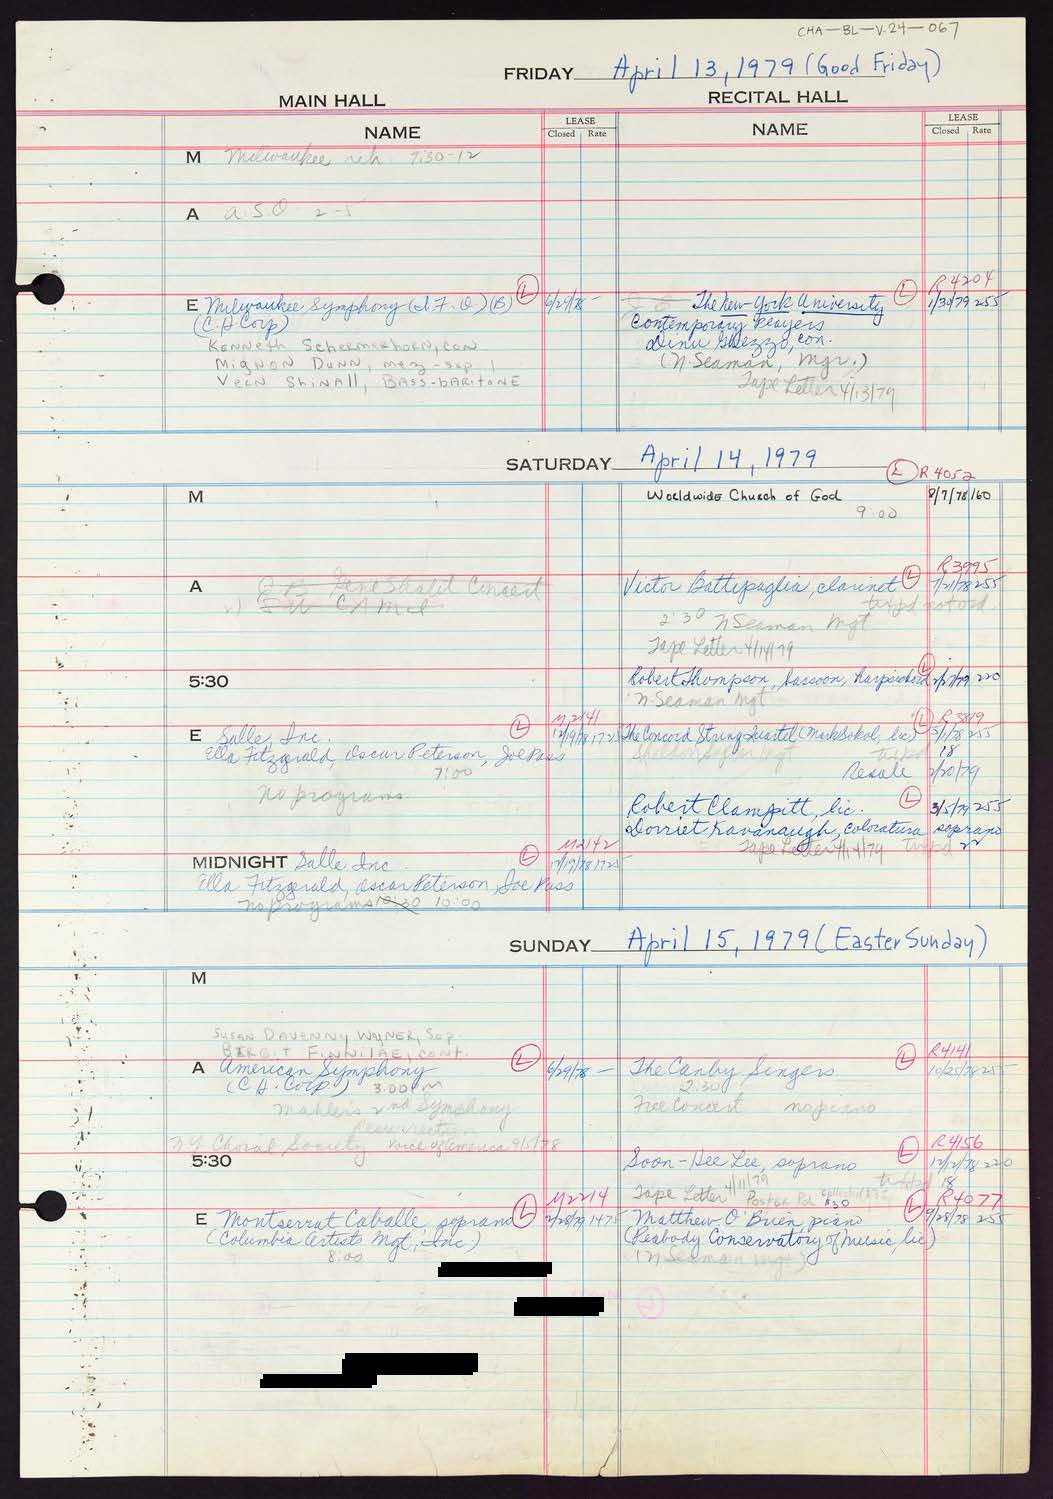 CHA-BL-V.24-067
FRIDAY April 13, 1979 (Good Friday)
MAIN HALL
RECITAL HALL
NAME
LEASE
Closed Rate
NAME
LEASE
Closed Rate
M Milwaukee reh. 9:30-12
A A.S.O 2-5
E Milwaukee Symphony (I.F.O)(B) L 6/29/78 -
(C.H Corp)
Kenneth Schermerhorn, con
Mignon Dunn, mez-sop
Vern Shinall, Bass-baritone
R4204
The New York University L 1/30/79 255
Contemporary Players
Dinu Ghezzo, con.
(N. Seaman, Mgr.)
Tape Letter 4/13/79
SATURDAY April 14, 1979
L R4052
M
Worldwide Church of God 8/7/78 160
9:00
A
Concert
R3995
Victor Battipaglia, clarinet L 7/21/78 255
2:30 N Seaman Mgt
Tape Letter 4/14/79
5:30
Robert Thompson, bassoon, harpsichord L 2/27/79 220
N. Seaman Mgt
E Salle, Inc. L M2141
12/19/78 1725
Ella Fitzgerald, Oscar Peterson, Joe Pass
7:00
No programs
R3819
The Concord String Quartet (Mark Sokol, lic) L 5/1/78 255
18
Resale 2/20/79
Robert Clampitt, lic. L 3/5/79 255
Dorriet Kavanaugh, coloratura soprano
Tape Letter 4/14/79 Typed 22
MIDNIGHT Salle Inc L M2142
12/19/78 1725
Ella Fitzgerald, Oscar Peterson, Joe Pass
no programs 10:30 10:00
SUNDAY April 15, 1979 (Easter Sunday)
M
Susan Davenny Wyner, Sop.
Birgit Finnilae, cont.
A American Symphony L 6/29/78 -
(C.H. Corp) 3:00 PM
Mahler's 2nd Symphony
Resurrection
NY Choral Society Voice of America 9/5/78
R4141
The Canby Singers L 10/25/78 255
2:30
Free Concert no piano
5:30
R4156
Soon-Hee Lee, soprano L 12/12/78 220
18
Tape Letter 4/11/79 Poster Pd. $30
E Montserrat Caballe, soprano L M2214
2/28/79 1475
(Columbia Artists Mgt., Inc.)
8:00
R4077
Matthew O'Brien, piano L 9/28/78 255
(Peabody Conservatory of Music, lic)
(N Seaman Mgt)